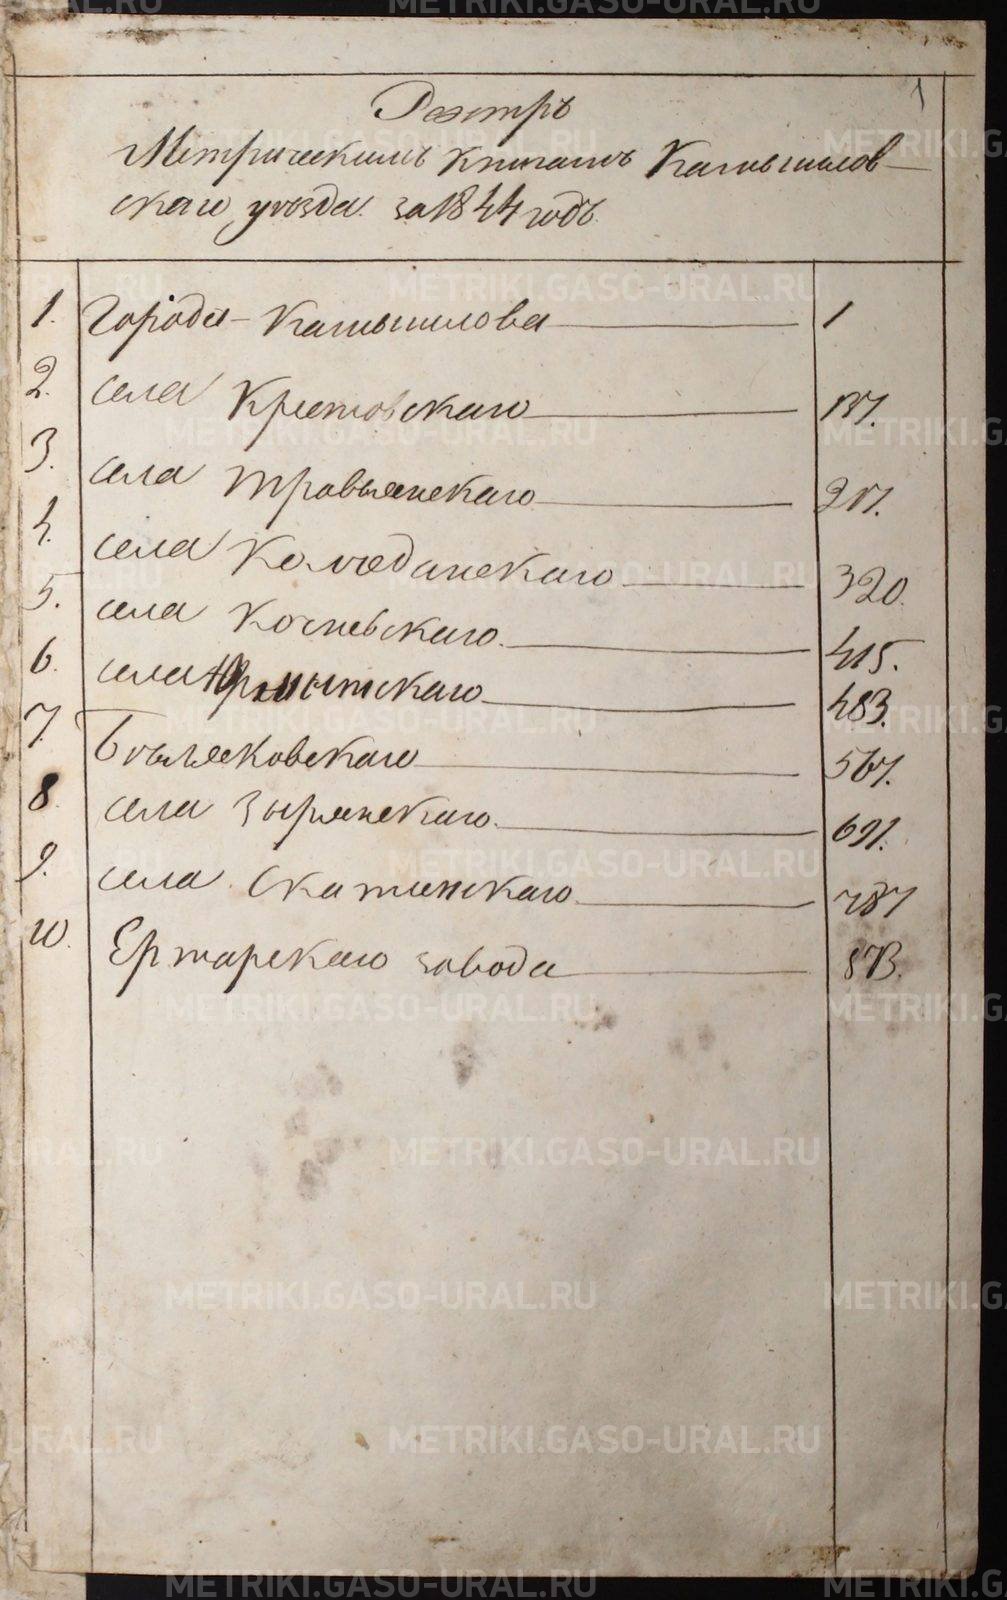 1
Реэстръ
Метрическимъ книгамъ Камышлов-
скаго уѣзда за 1844 годъ.
1. Города Камышлова 1
2. села Крестовскаго
3. села Травянскаго
4. села Колчеданскаго 320.
5. села Кочневскаго. 415.
6. села 483.
7. Бѣляковскаго 567.
8. села Зырянскаго. 691.
9. села Скатинскаго 787
10. Ертарскаго завода 873.
METRIKI.GASO-URAL.RU